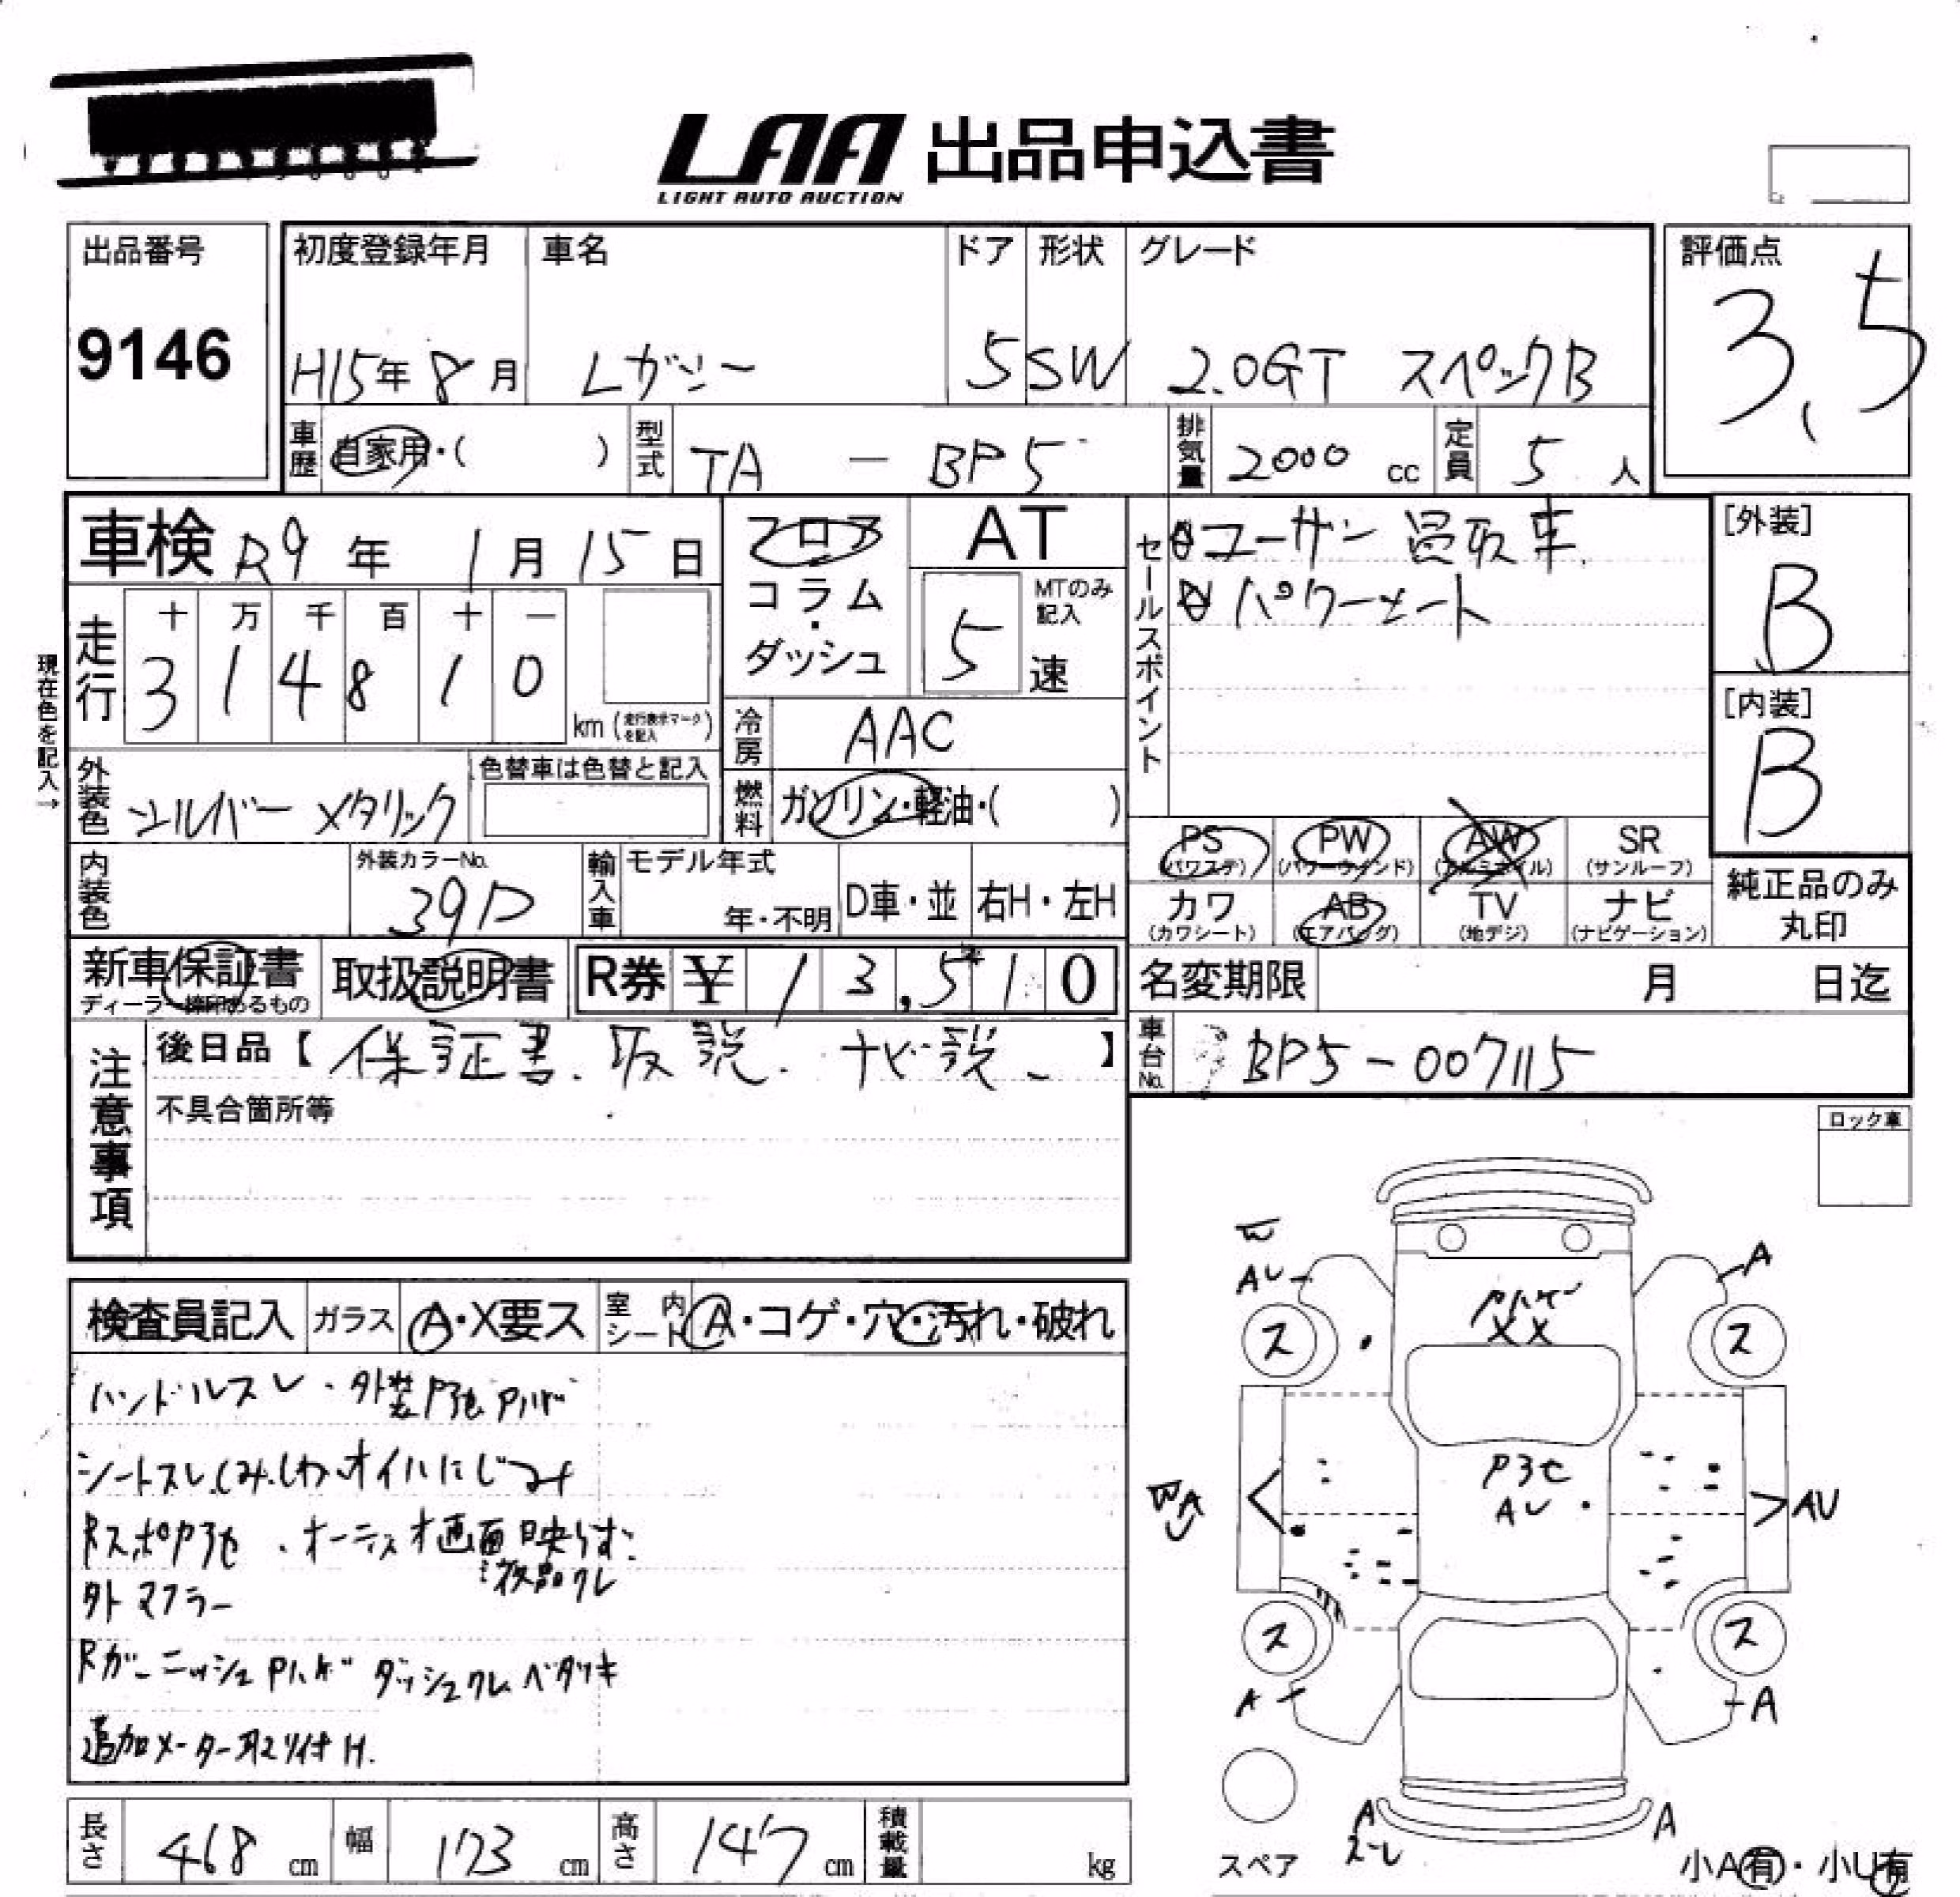 LAA 出品申込書
LIGHT AUTO AUCTION
出品番号
9146
初度登録年月
H15年 8月
車名
レガシー
ドア
5
形状
SW
グレード
2.0GT スペックB
評価点
3.5
車歴 自家用・( )
型式 TA - BP5
排気量 2000 cc
定員 5 人
車検 R9年 1月 15日
走行
十 万 千 百 十 一
3 1 4 8 1 0
km (走行表示マークを記入)
現在色を記入→
フロア
コラム
・
ダッシュ
AT
MTのみ記入
5 速
冷房 AAC
燃料 ガソリン・軽油・( )
セールスポイント
ユーザー買取車
パワーシート
[外装]
B
[内装]
B
外装色 シルバーメタリック
色替車は色替と記入
内装色
外装カラーNo.
39D
輸入車
モデル年式
年・不明
D車・並
右H・左H
PS (パワステ)
PW (パワーウインド)
AW (アルミホイル)
SR (サンルーフ)
カワ (カワシート)
AB (エアバッグ)
TV (地デジ)
ナビ (ナビゲーション)
純正品のみ
丸印
新車保証書
ディーラー捺印あるもの
取扱説明書
R券 ¥ 13,510
名変期限 月 日迄
車台No. BP5-007115
注意事項
後日品【保証書、取説、ナビ説】
不具合箇所等
ロック車
検査員記入
ガラス A・X要ス
室内シート A・コゲ・穴・汚れ・破れ
ハンドルスレ・外装P3セ Pハゲ
シートスレ.しみ.しわ.オイルにじみ
RスポP3セ・オーディオ画面映らず
液晶ワレ
外マフラー
Rガーニッシュ Pハゲ ダッシュワレ ベタツキ
追加メーター取り付H.
W
AU
A
Pハゲ
XX
ス
ス
P3セ
AU
AU
ス
ス
A
A
A
スーレ
A
スペア
小A有・小U有
長さ 468 cm
幅 173 cm
高さ 147 cm
積載量 kg